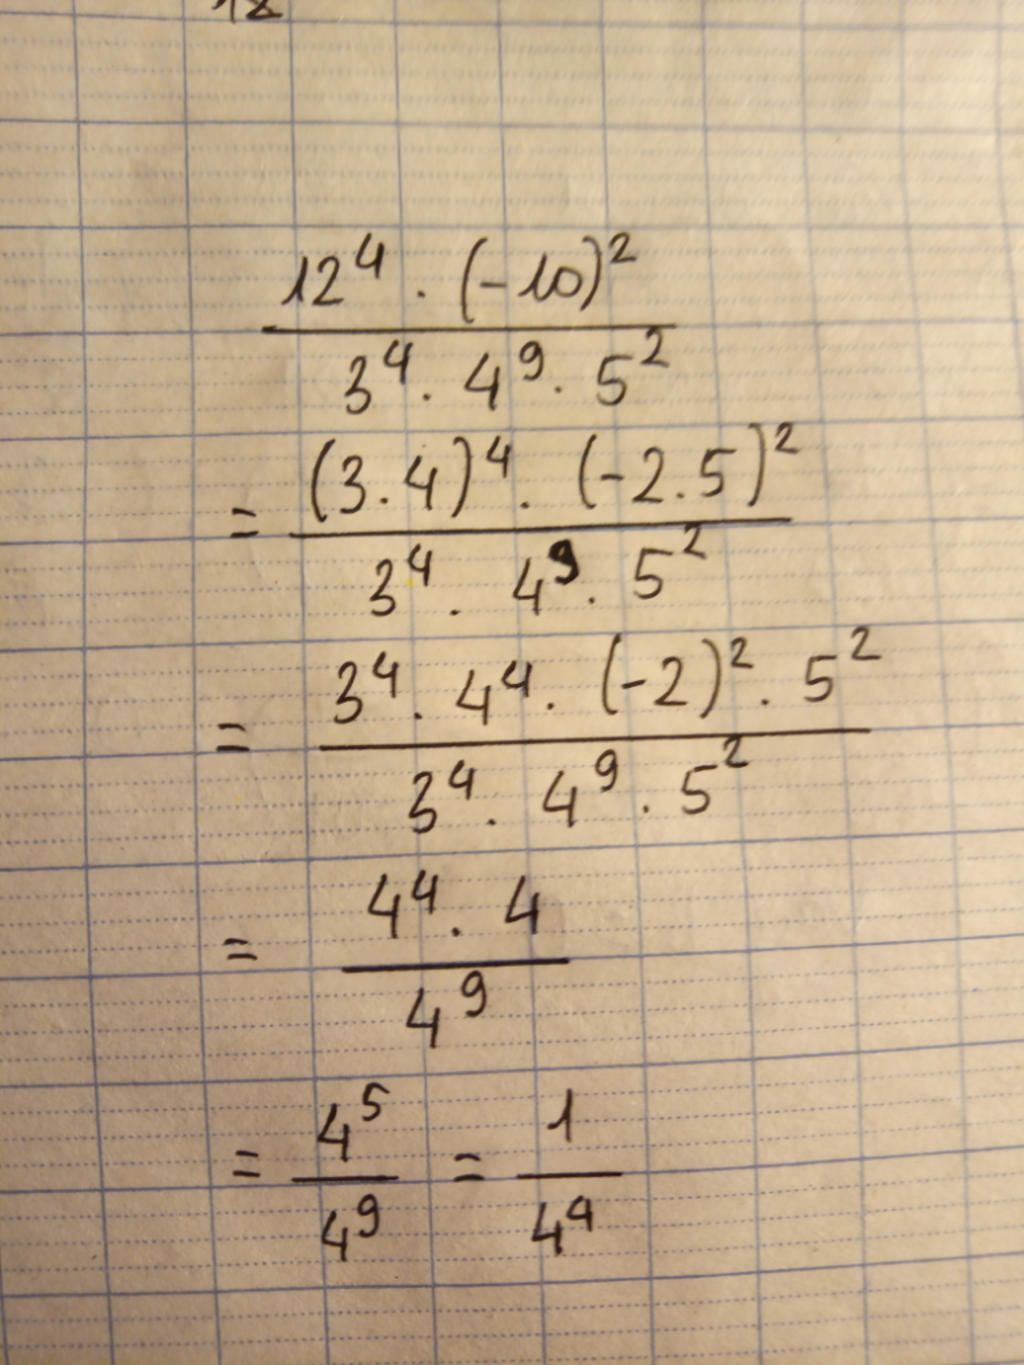 12⁴ . (-10)²
3⁴ . 4⁹ . 5²
= (3.4)⁴ . (-2.5)²
3⁴ . 4⁹ . 5²
= 3⁴ . 4⁴ . (-2)² . 5²
3⁴ . 4⁹ . 5²
= 4⁴ . 4
4⁹
= 4⁵ = 1
4⁹ 4⁴